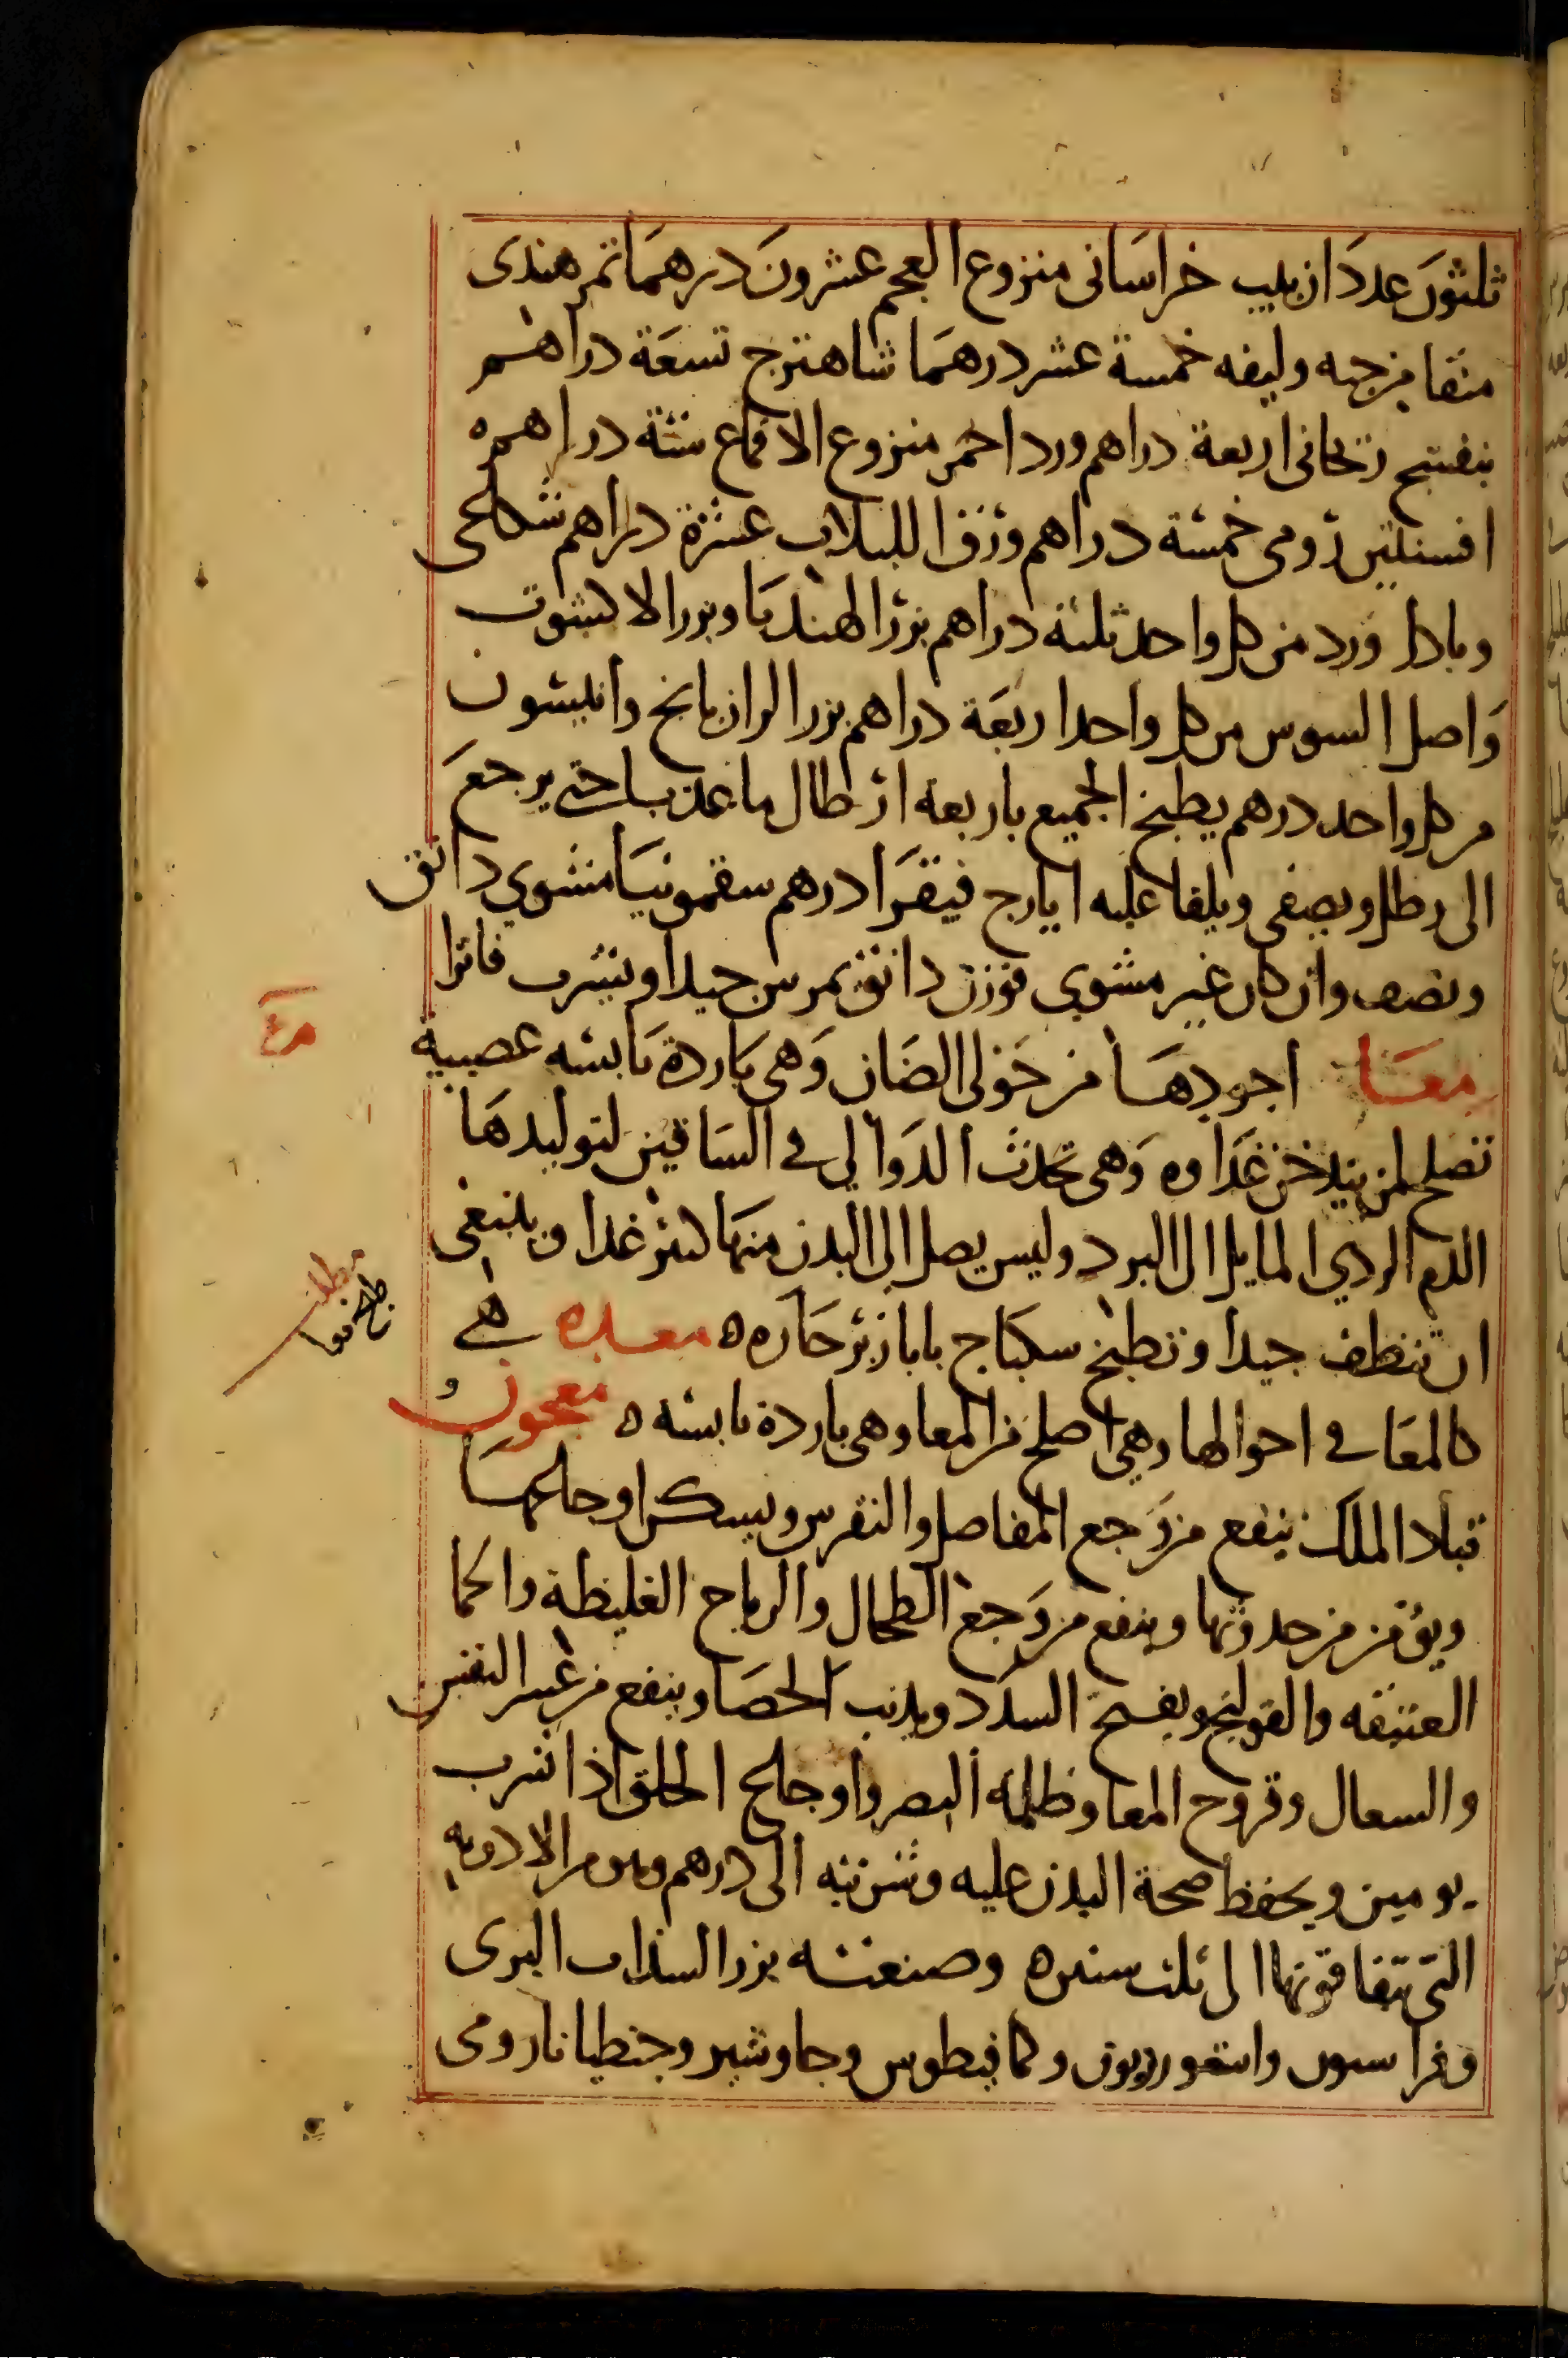 ثلثون عددا زبيب خراسانى منزوع العجم عشرون درهما تمر هندى
منقا من حبه وليفه خمسة عشر درهما شاهترج تسعة دراهم
بنفسج ريحانى اربعة دراهم ورد احمر منزوع الاقماع ستة دراهم ه
افسنتين رومى خمسة دراهم ورق اللبلاب عشرة دراهم شكاعى
وباداورد من كل واحد ثلثة دراهم بزر الهندبا وبزر الاكشوت
واصل السوس من كل واحد اربعة دراهم بزر الرازيانج وانيسون
من كل واحد درهم يطبخ الجميع باربعة ارطال ما عذب حتى يرجع
الى رطل ويصفى ويلقا عليه ايارج فيقرا درهم سقمونيا مشوي دانق
ونصف وان كان غير مشوي فوزن دانق يمرس جيدا ويشرب فاترا
معا اجودها من حولى الضان وهى باردة يابسه عصبية
تصلح لمن يتدخن غداوه وهى تحدث الدوالي فى الساقين لتوليدها
الدم الردي المايل الى البرد وليس يصل الى البدن منها كثير غدا وينبغى
ان تنظف جيدا وتطبخ سكباج بابازير حاره ه معده هى
كالمعا فى احوالها وهي اصلح من المعا وهى باردة يابسه ه معجون
قبادا الملك ينفع من وجع المفاصل والنقرس ويسكن اوجاعهما
ويؤمن من حدوثها وينفع من وجع الطحال والرياح الغليظة والحما
العتيقه والقولنج ويفتح السدد ويذيب الحصا وينفع من عسر النفس
والسعال وقروح المعا وظلمة البصر واوجاع الحلق اذا شرب
يومين ويحفظ صحة البدن عليه وشربته الى درهم وهو من الادويه
التى تبقا قوتها الى ثلث سنين ه وصنعته بزر السذاب البرى
وفراسيون واسقورديون وكمافيطوس وجاوشير وجنطيانا رومى